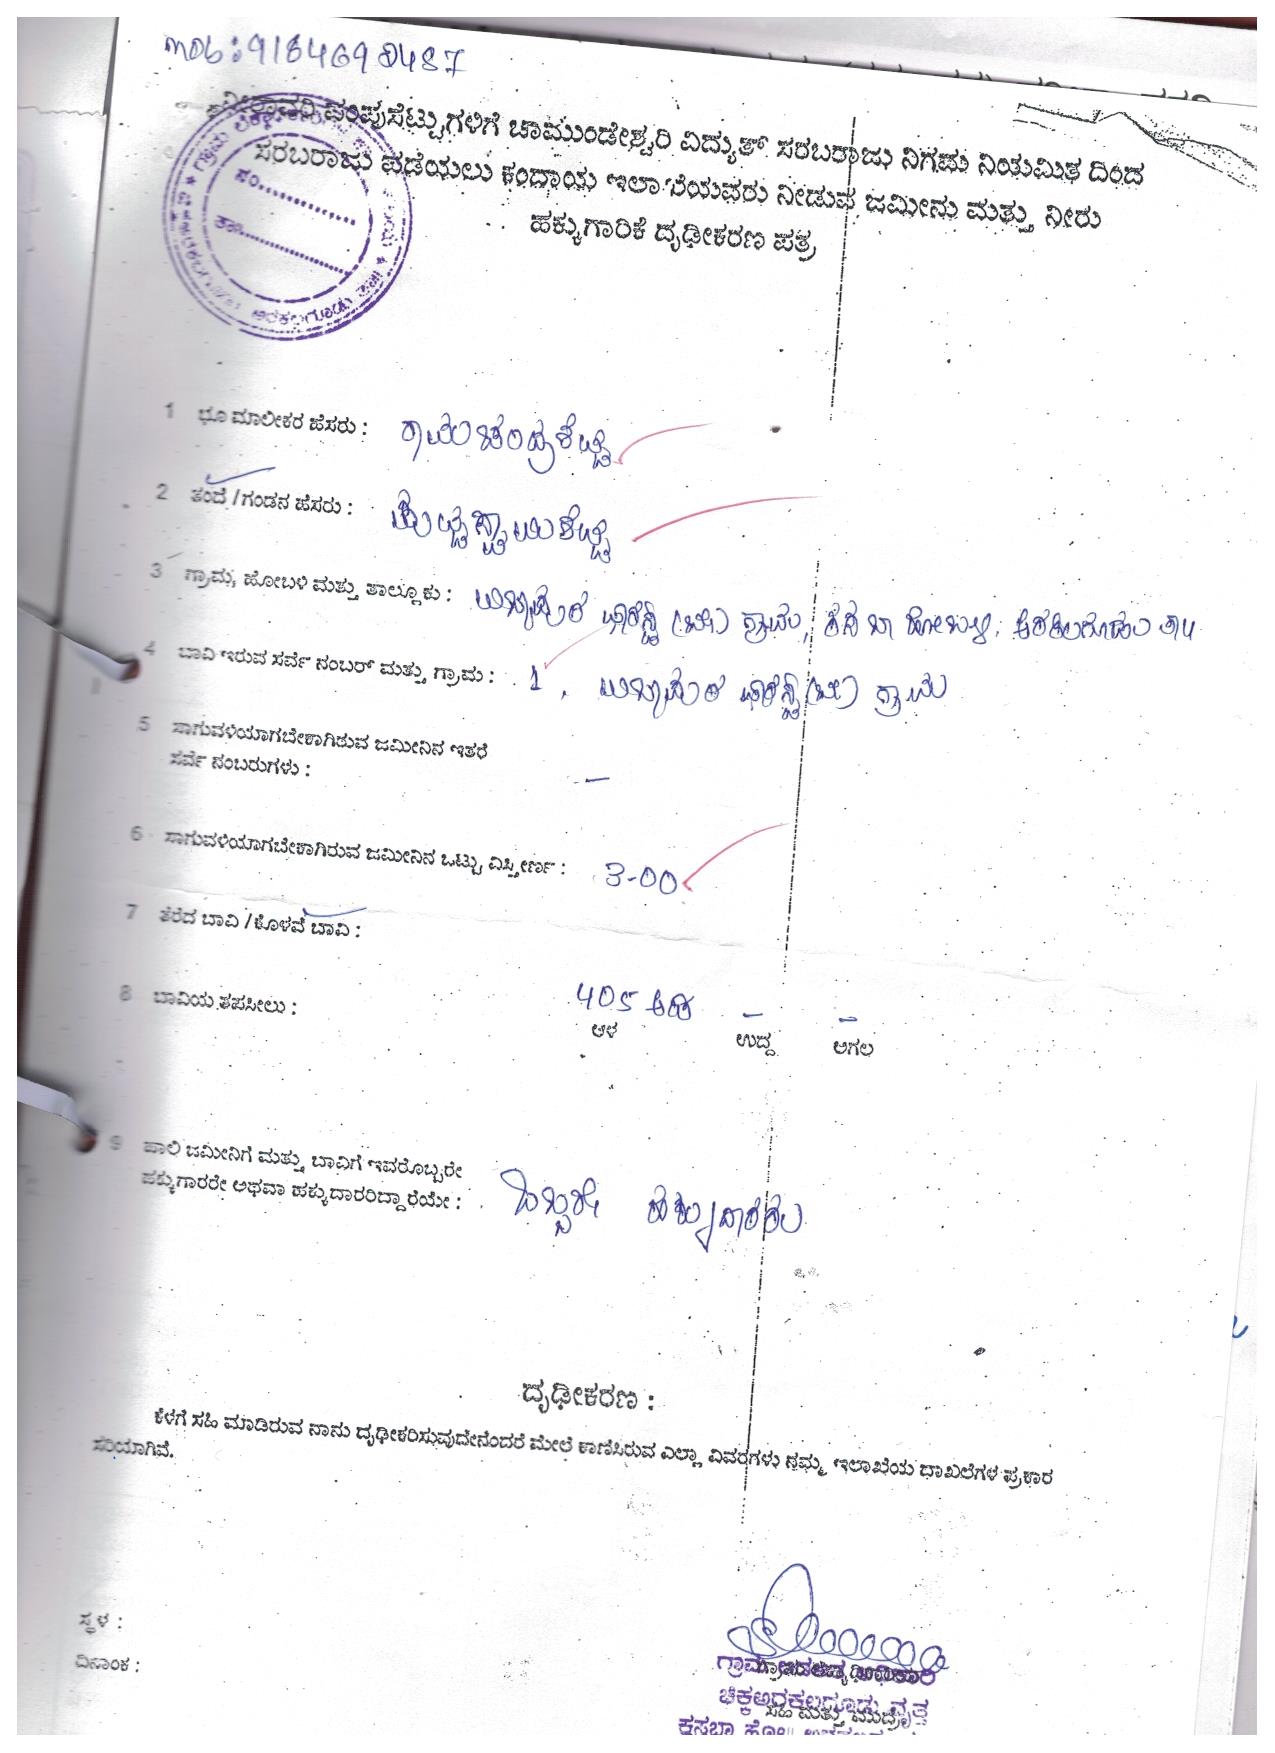 mob: 9184690487
ನೀರಾವರಿ ಪಂಪುಸೆಟ್ಟುಗಳಿಗೆ ಚಾಮುಂಡೇಶ್ವರಿ ವಿದ್ಯುತ್ ಸರಬರಾಜು ನಿಗಮ ನಿಯಮಿತ ದಿಂದ
ಸರಬರಾಜು ಪಡೆಯಲು ಕಂದಾಯ ಇಲಾಖೆಯವರು ನೀಡುವ ಜಮೀನು ಮತ್ತು ನೀರು
ಹಕ್ಕುಗಾರಿಕೆ ದೃಢೀಕರಣ ಪತ್ರ
ಸಂ..................
ತಾ......................
1 ಭೂ ಮಾಲೀಕರ ಹೆಸರು : ರಾಮಚಂದ್ರಶೆಟ್ಟಿ
2 ತಂದೆ / ಗಂಡನ ಹೆಸರು : ಪುಟ್ಟಸ್ವಾಮಿಶೆಟ್ಟಿ
3 ಗ್ರಾಮ, ಹೋಬಳಿ ಮತ್ತು ತಾಲ್ಲೂಕು : ಗ್ರಾಮ, ಕಸಬಾ ಹೋಬಳಿ, ಅರಕಲಗೂಡು ತಾಃ
4 ಬಾವಿ ಇರುವ ಸರ್ವೆ ನಂಬರ್ ಮತ್ತು ಗ್ರಾಮ : 1, ಗ್ರಾಮ
5 ಸಾಗುವಳಿಯಾಗಬೇಕಾಗಿರುವ ಜಮೀನಿನ ಇತರೆ
ಸರ್ವೆ ನಂಬರುಗಳು : –
6 ಸಾಗುವಳಿಯಾಗಬೇಕಾಗಿರುವ ಜಮೀನಿನ ಒಟ್ಟು ವಿಸ್ತೀರ್ಣ : 3-00
7 ತೆರೆದ ಬಾವಿ / ಕೊಳವೆ ಬಾವಿ :
8 ಬಾವಿಯ ತಪಸೀಲು : 405 ಅಡಿ – –
ಆಳ ಉದ್ದ ಅಗಲ
9 ಹಾಲಿ ಜಮೀನಿಗೆ ಮತ್ತು ಬಾವಿಗೆ ಇವರೊಬ್ಬರೇ
ಹಕ್ಕುಗಾರರೇ ಅಥವಾ ಹಕ್ಕುದಾರರಿದ್ದಾರೆಯೇ : ಒಬ್ಬರೇ ಹಕ್ಕುದಾರರು
ದೃಢೀಕರಣ :
ಕೆಳಗೆ ಸಹಿ ಮಾಡಿರುವ ನಾನು ದೃಢೀಕರಿಸುವುದೇನೆಂದರೆ ಮೇಲೆ ಕಾಣಿಸಿರುವ ಎಲ್ಲಾ ವಿವರಗಳು ನಮ್ಮ ಇಲಾಖೆಯ ದಾಖಲೆಗಳ ಪ್ರಕಾರ
ಸರಿಯಾಗಿವೆ.
ಸ್ಥಳ :
ದಿನಾಂಕ :
ಚಿಕ್ಕಅರಕಲಗೂಡು ವೃತ್ತ
ಸಹಿ ಮತ್ತು ಮುದ್ರೆ
ಕಸಬಾ ಹೋ||